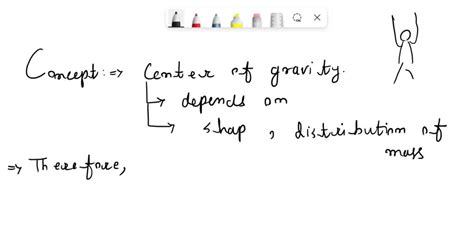 Concept:⇒ Center of gravity.
↳ depends on
↳ shap , distribution of
mass
⇒ Therefore,